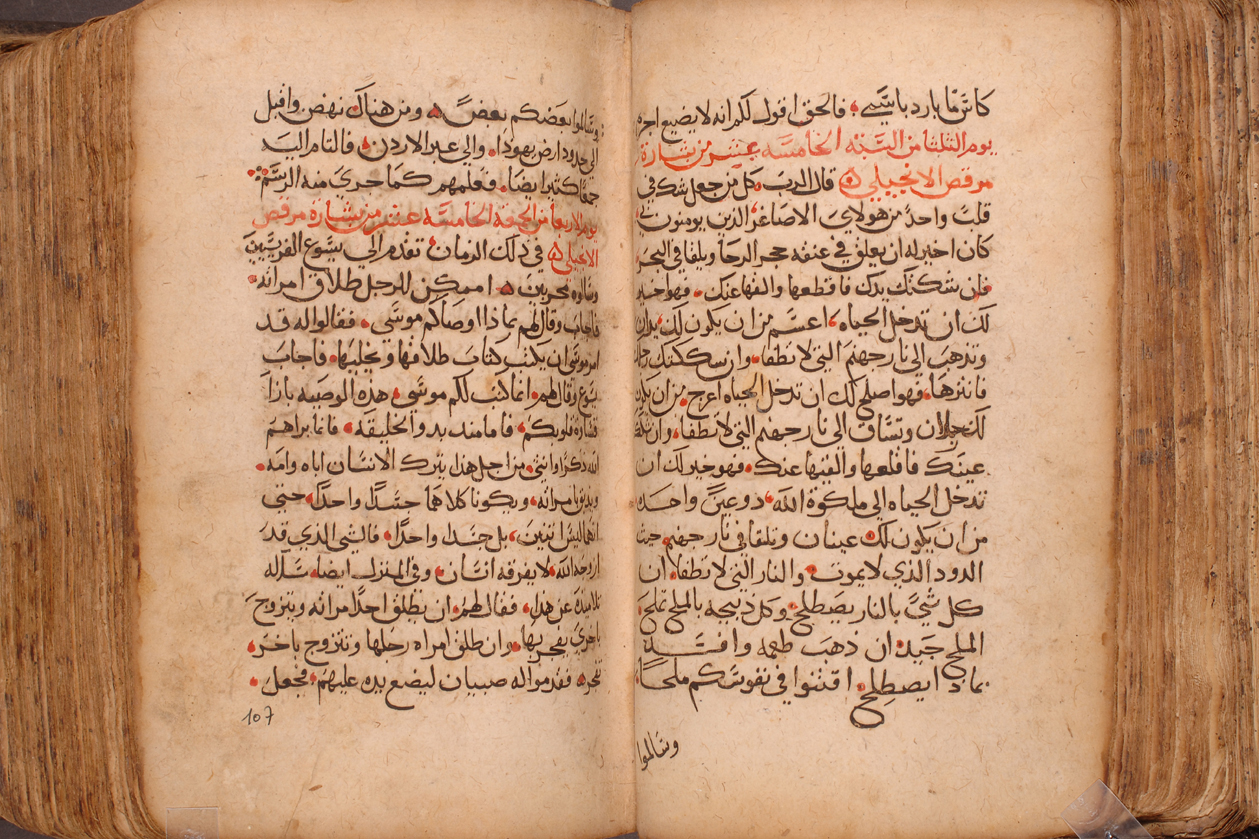 كاس ما بارد باسمي فالحق اقول لكم انه لا يضيع اجره
يوم الثلثا من السبة الخامسه عشر من بشارة
مرقص الانجيلي قال الرب كل من جعل شك في
قلب واحد من هولاي الاصاغر الذين يومنون
كان اخير له ان يعلق في عنقه حجر الرحا ويلقا في البحر
فان شككتك يدك فاقطعها والقها عنك فهو خير
لك ان تدخل الحياه اعسم من ان يكون لك يدان
وتذهب الى نار جهنم التي لا تطفا وان شككتك رجلك
فانترها فهو اصلح لك ان تدخل الحياه اعرج من ان يكون
لك رجلان وتساق الى نار جهنم التي لا تطفا وان شككتك
عينك فاقلعها والقيها عنك فهو خير لك ان
تدخل الحياه الى ملكوة الله ذو عين واحده
من ان يكون لك عينان وتلقا في نار جهنم حيث
الدود الذي لا يموت والنار التي لا تطفا ان
كل شي بالنار يصطلح وكل ذبيحه بالملح تملح
الملح جيد ان ذهب طعمه وافسد
بماذا يصطلح اقتنوا في نفوسكم ملحا
وسالموا
وسالموا بعضكم بعض ومن هناك نهض واقبل
الى حدود ارض يهودا والى عبر الاردن فالتام اليه
جمعا كثير ايضا فعلمهم كما جرى منه الرسم
يوم الاربعا من الجمعه الخامسه عشر من بشارة مرقص
الانجيلي في ذلك الزمان تقدم الى يسوع الفريسيين
وسالوه مجربين ا ممكن للرجل طلاق امراته
فاجاب وقال لهم بماذا اوصاكم موسى فقالوا له قد
امر موسى ان يكتب كتاب طلاقها ويخليها فاجاب
يسوع وقال لهم انما كتب لكم موسى هذه الوصيه بازا
قساوة قلوبكم فاما منذ بدو الخليقه فانما براهم
الله ذكرا وانثى من اجل هذا يترك الانسان اباه وامه
ويدنق بامراته ويكونا كلاهما جسدا واحدا حتى
انهما ليس اثنين بل جسدا واحدا فالشي الذي قد
ازوجه الله لا يفرقه انسان وفي المنزل ايضا ساله
تلاميذه عن هذا فقال لهم ان يطلق احدا مراته ويتزوج
باخرى يفجر بها وان طلق امراه رجلها وتتزوج باخر
تفجر فقدموا له صبيان ليضع يده عليهم فجعل
107